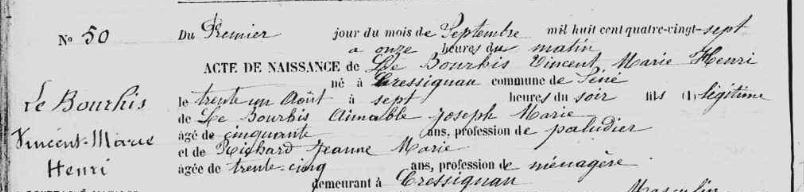 Nº 50
Du Premier jour du mois de Septembre mil huit cent quatre-vingt-sept
a onze heures du matin
ACTE DE NAISSANCE de Le Bourhis Vincent Marie Henri
né à Cressignan commune de Séné
le trente un Août à sept heures du soir fils (1) légitime
de Le Bourhis Aimable Joseph Marie
âgé de cinquante ans, profession de paludier
et de Richard Jeanne Marie
agée de trente-cinq ans, profession de ménagère
demeurant à Cressignan
Le Bourhis
Vincent-Marie
Henri
Masculin